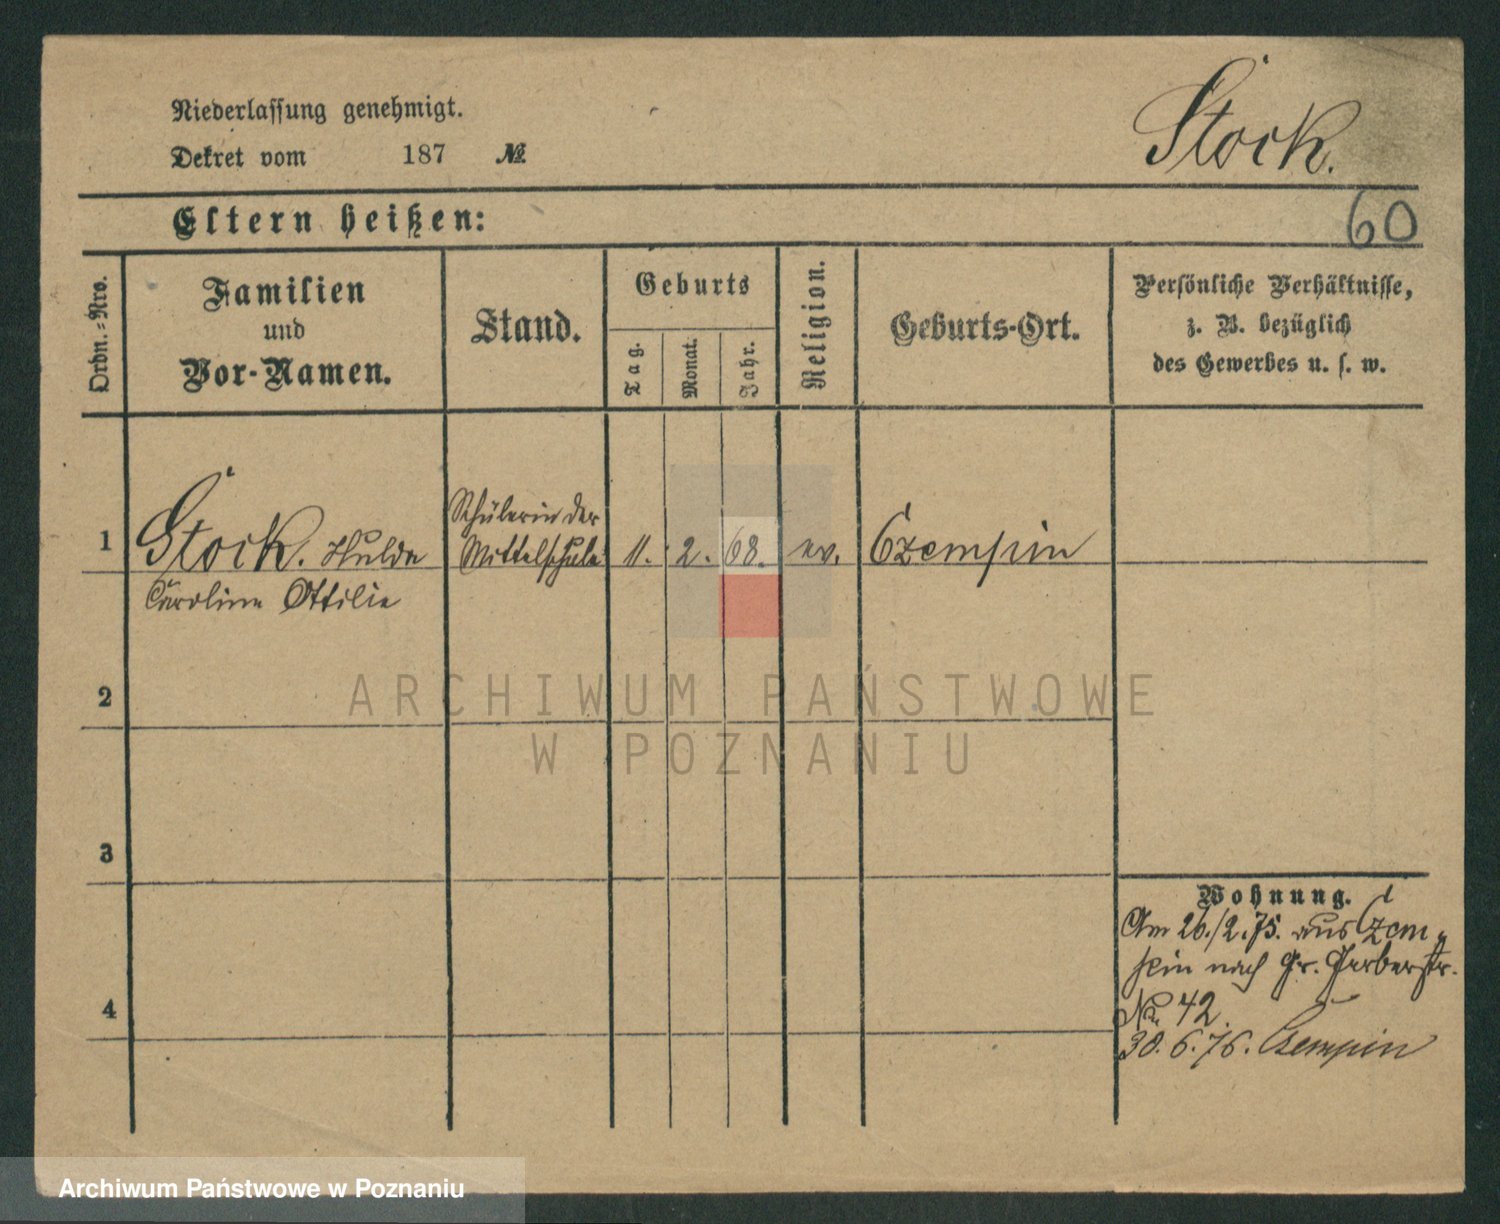 Niederlassung genehmigt.
Dekret vom 187 №
Stock.
Eltern heißen:
60
Ordn.-Nro.
Familien
und
Vor-Namen.
Stand.
Geburts
Tag.
Monat.
Jahr.
Religion.
Geburts-Ort.
Persönliche Verhältnisse,
z. B. bezüglich
des Gewerbes u. s. w.
1
Stock. Hulda
Caroline Ottilie
Schülerin der
Mittelschule
11.
2.
68.
ev.
Czempin
2
3
4
Wohnung.
Am 26./2.75. aus Czem„
pin nach Gr. Gerberstr.
No 42.
30.6.76. Czempin
ARCHIWUM PAŃSTWOWE
W POZNANIU
Archiwum Państwowe w Poznaniu